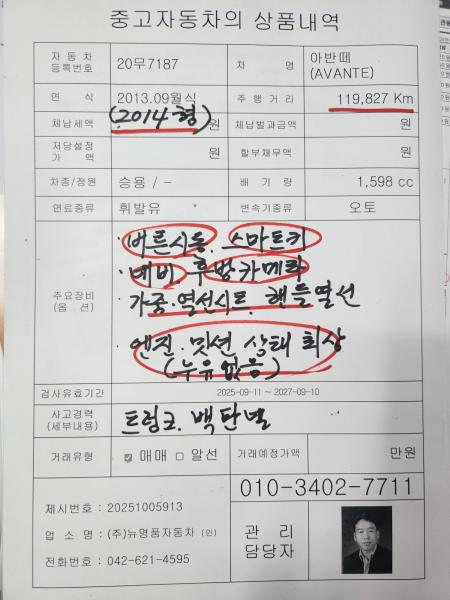 중고자동차의 상품내역
자동차 등록번호 20무7187 차 명 아반떼 (AVANTE)
연 식 2013.09월식 주행거리 119,827 Km
(2014형)
체납세액 원 체납벌과금액 원
저당설정 가 액 원 할부채무액 원
차종/정원 승용 / - 배 기 량 1,598 cc
연료종류 휘발유 변속기종류 오토
주요장비 (옵 션)
·버튼시동. 스마트키
·네비. 후방카메라
가죽·열선시트. 핸들열선
엔진·밋션 상태 최상
(누유없음)
검사유효기간 2025-09-11 ~ 2027-09-10
사고경력 (세부내용) 트렁크. 백판넬
거래유형 ☑ 매매 □ 알선 거래예정가액 만원
010-3402-7711
제시번호 : 20251005913
업 소 명 : (주)뉴명품자동차 (인)
전화번호 : 042-621-4595
관 리 담당자